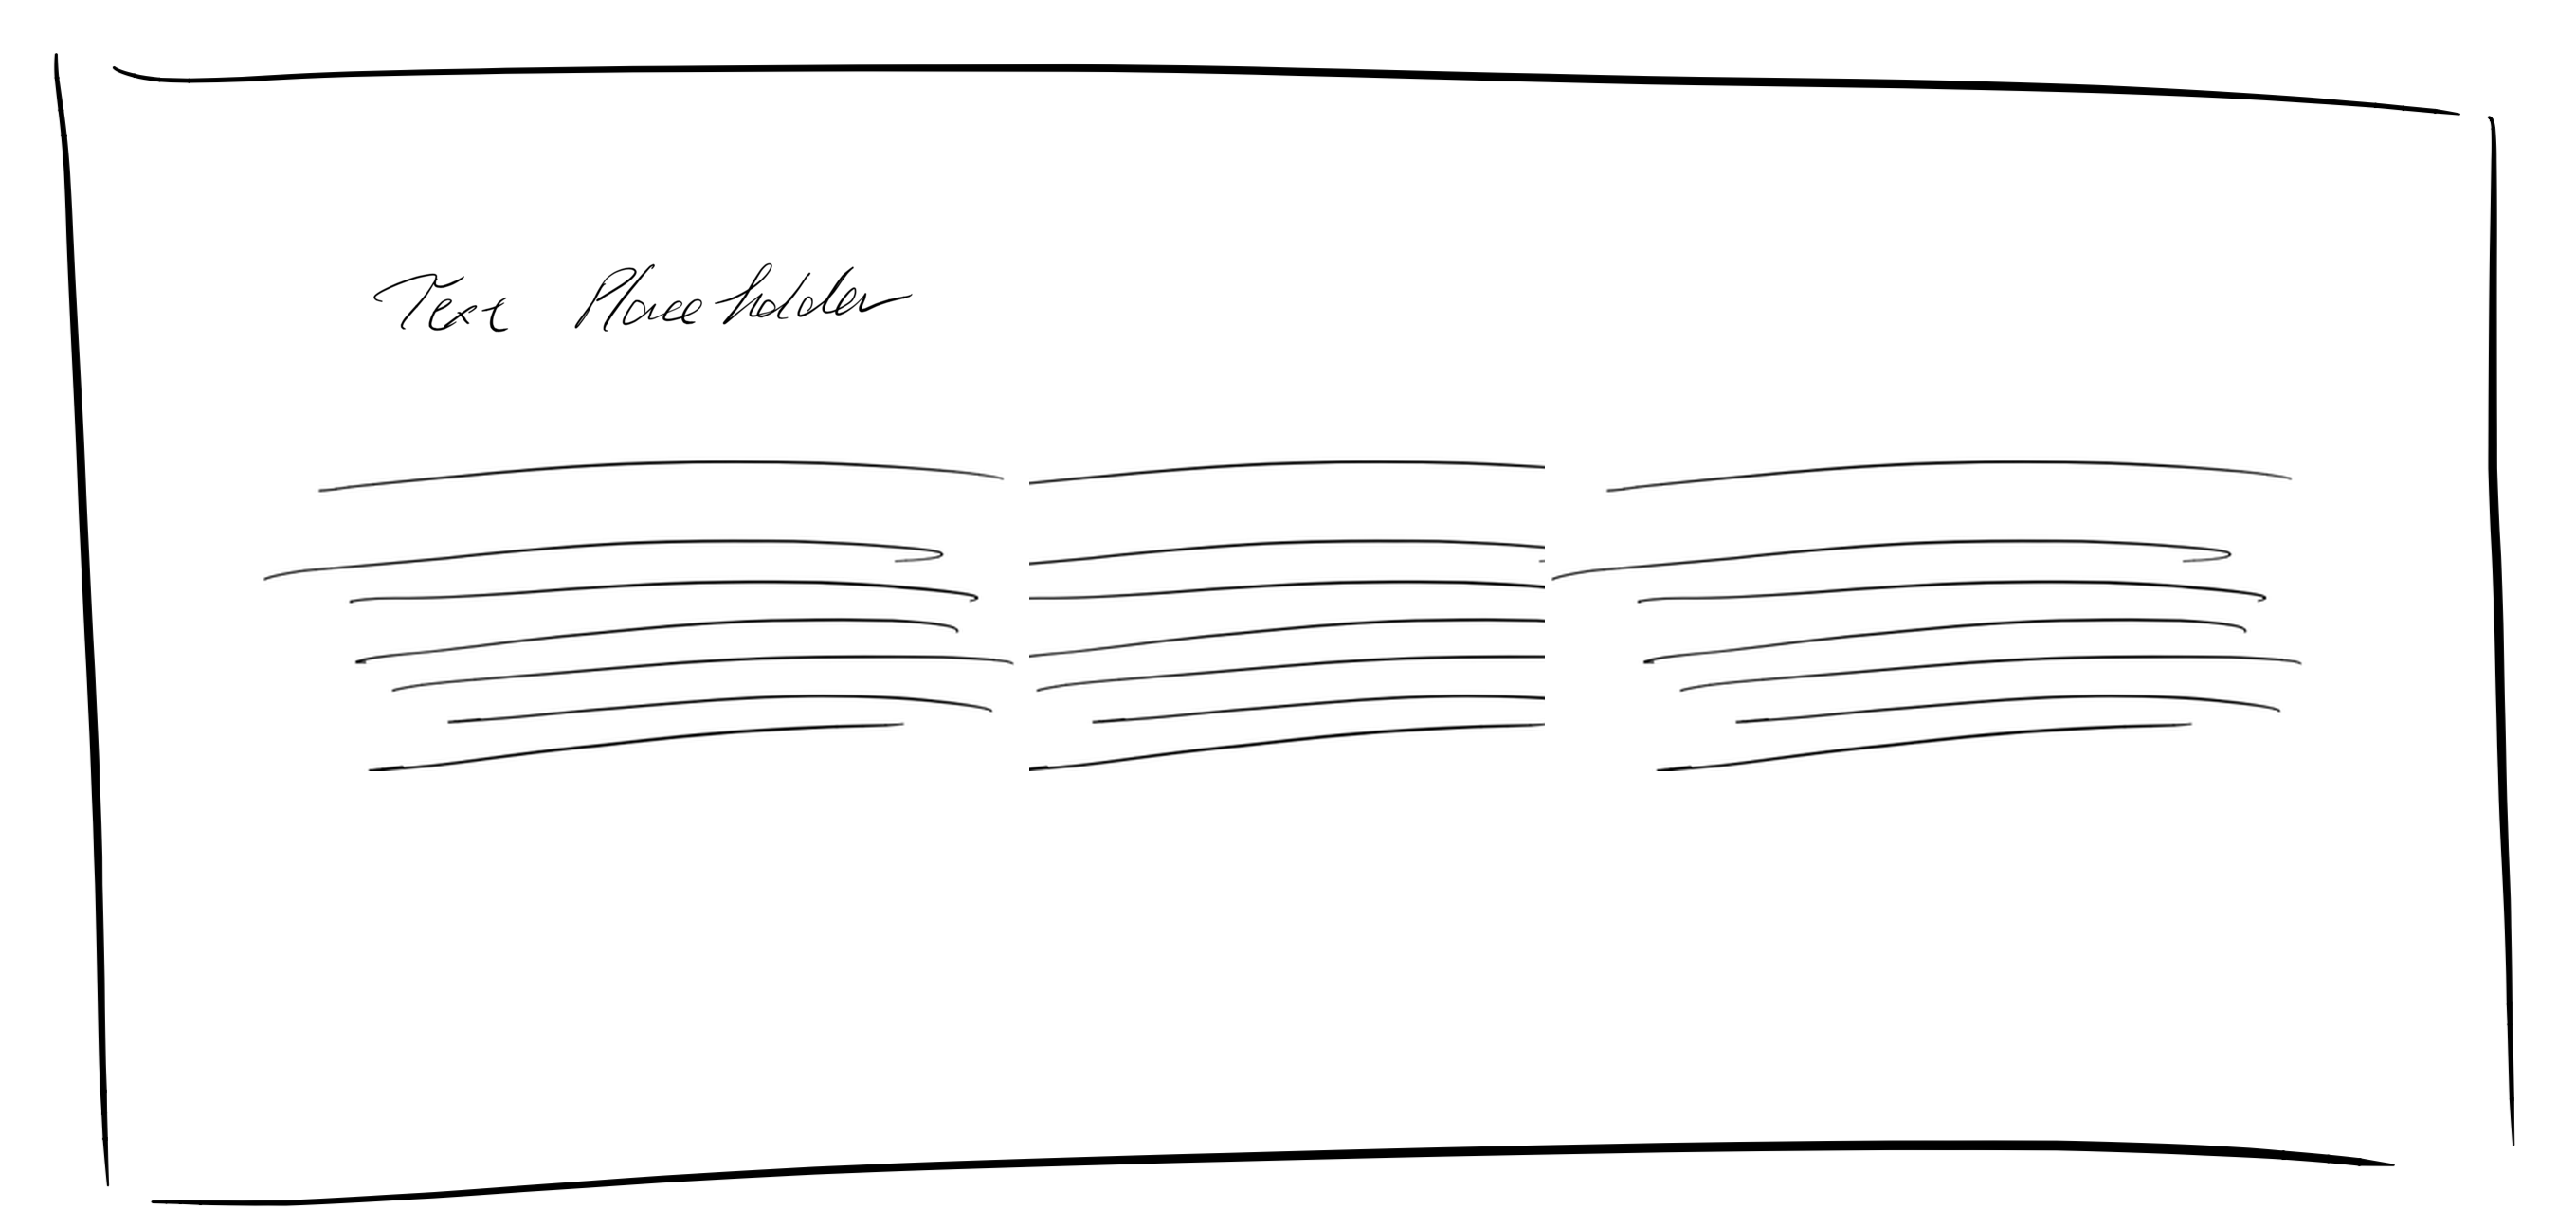 Text Placeholder